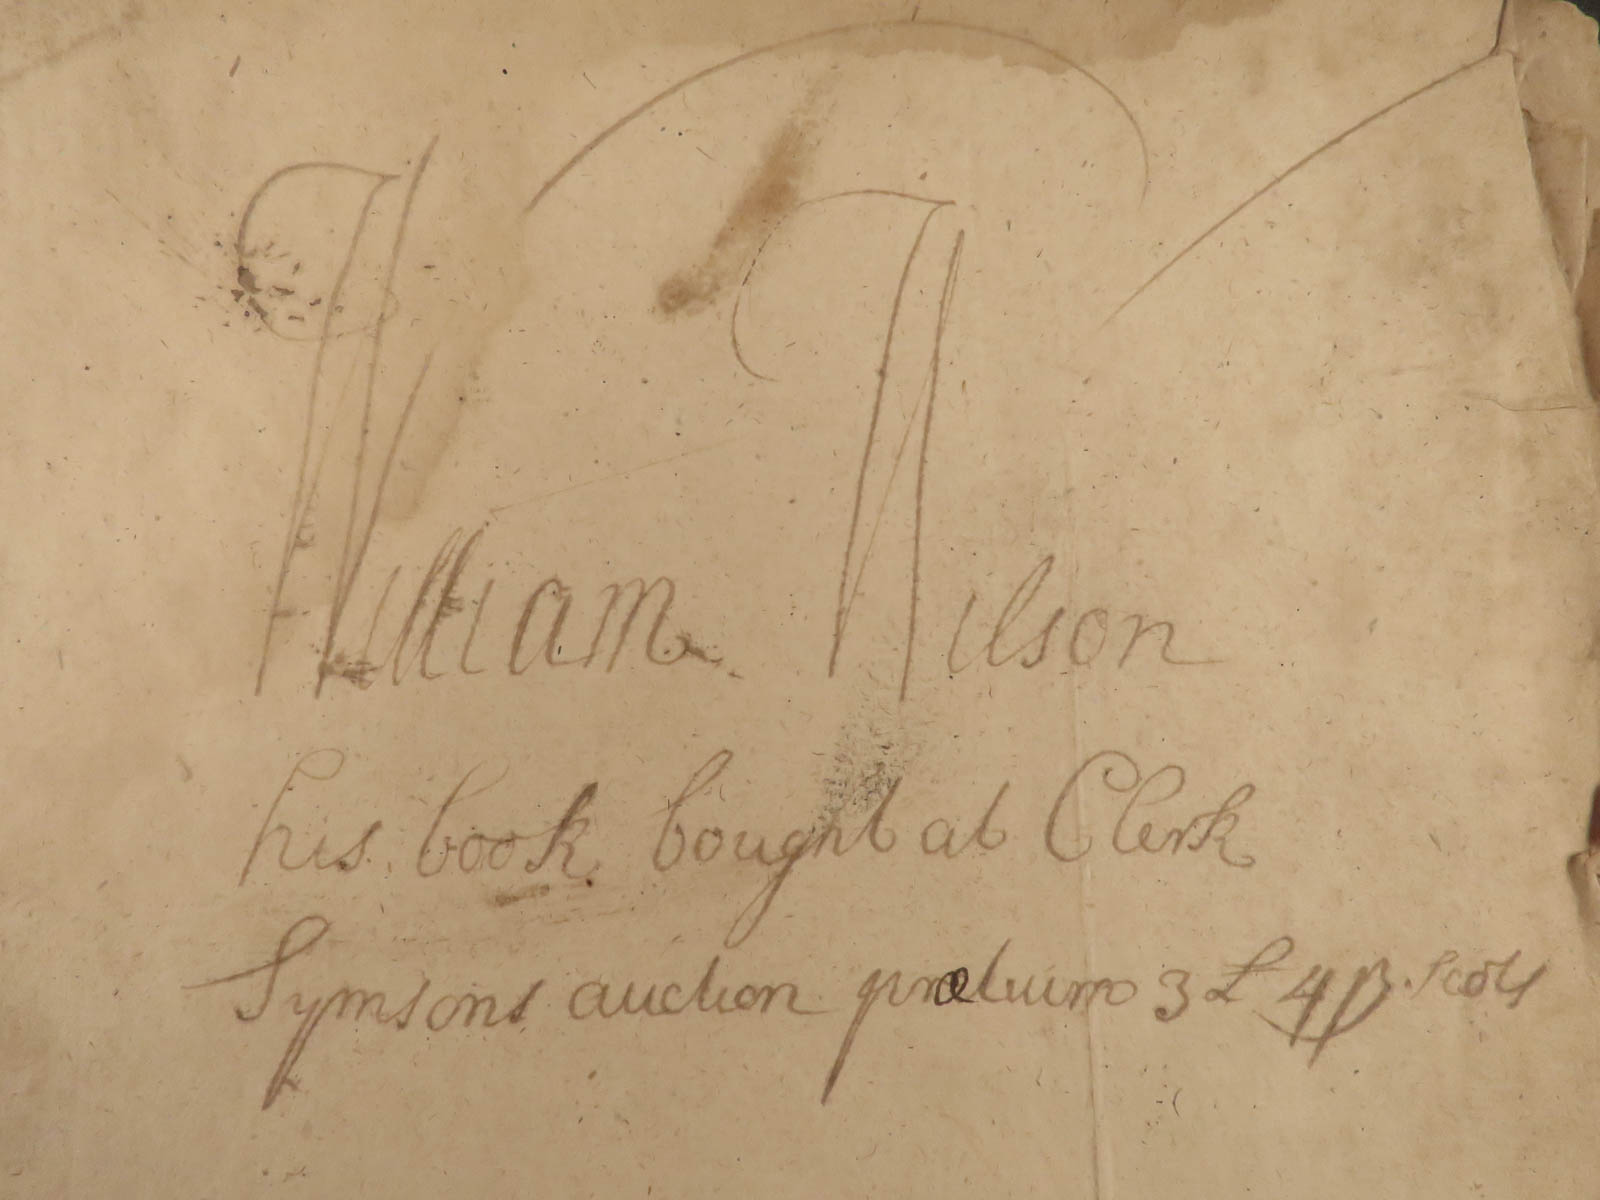 William Wilson
his book bought at Clerk
Symsons auction pretium 3 £ 4 ß Scots